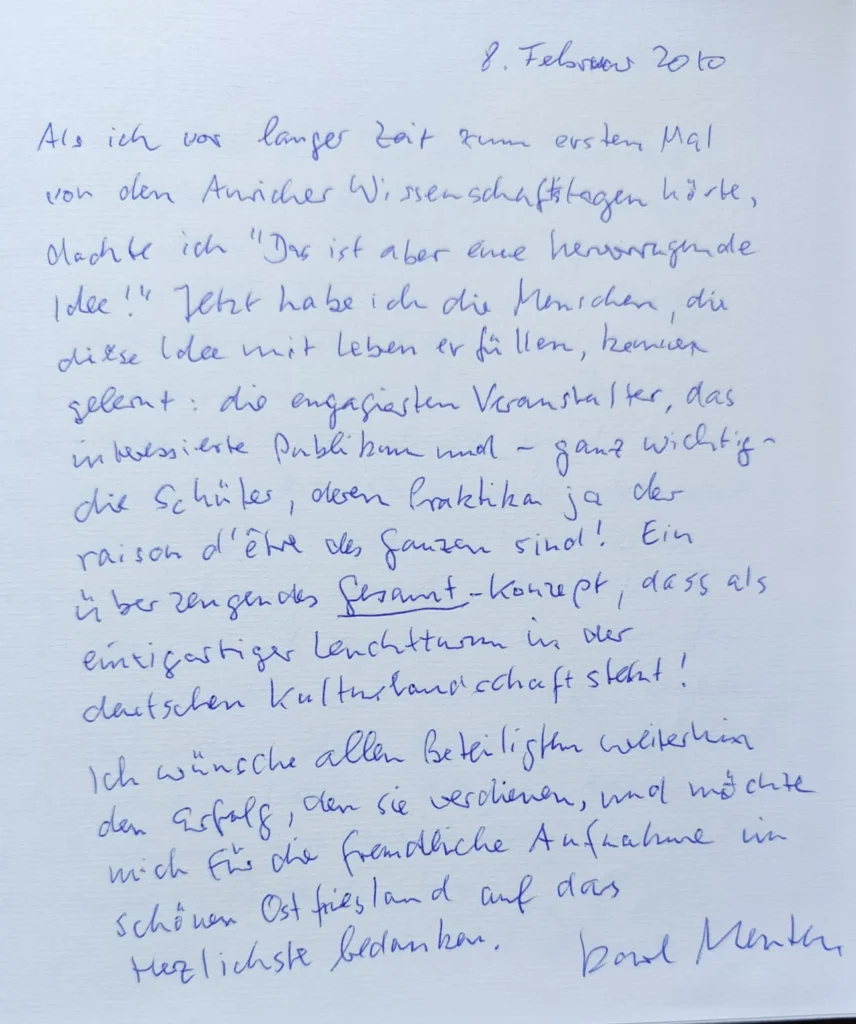 8. Februar 2010
Als ich vor langer Zeit zum ersten Mal
von den Auricher Wissenschaftstagen hörte,
dachte ich "Das ist aber eine hervorragende
Idee!" Jetzt habe ich die Menschen, die
diese Idee mit Leben erfüllen, kennen
gelernt: die engagierten Veranstalter, das
interessierte Publikum und - ganz wichtig -
die Schüler, deren Praktika ja der
raison d'être des Ganzen sind! Ein
überzeugendes Gesamt-Konzept, dass als
einzigartiger Leuchtturm in der
deutschen Kulturlandschaft steht!
Ich wünsche allen Beteiligten weiterhin
den Erfolg, den sie verdienen, und möchte
mich für die freundliche Aufnahme im
schönen Ostfriesland auf das
Herzlichste bedanken.
Karl Menten